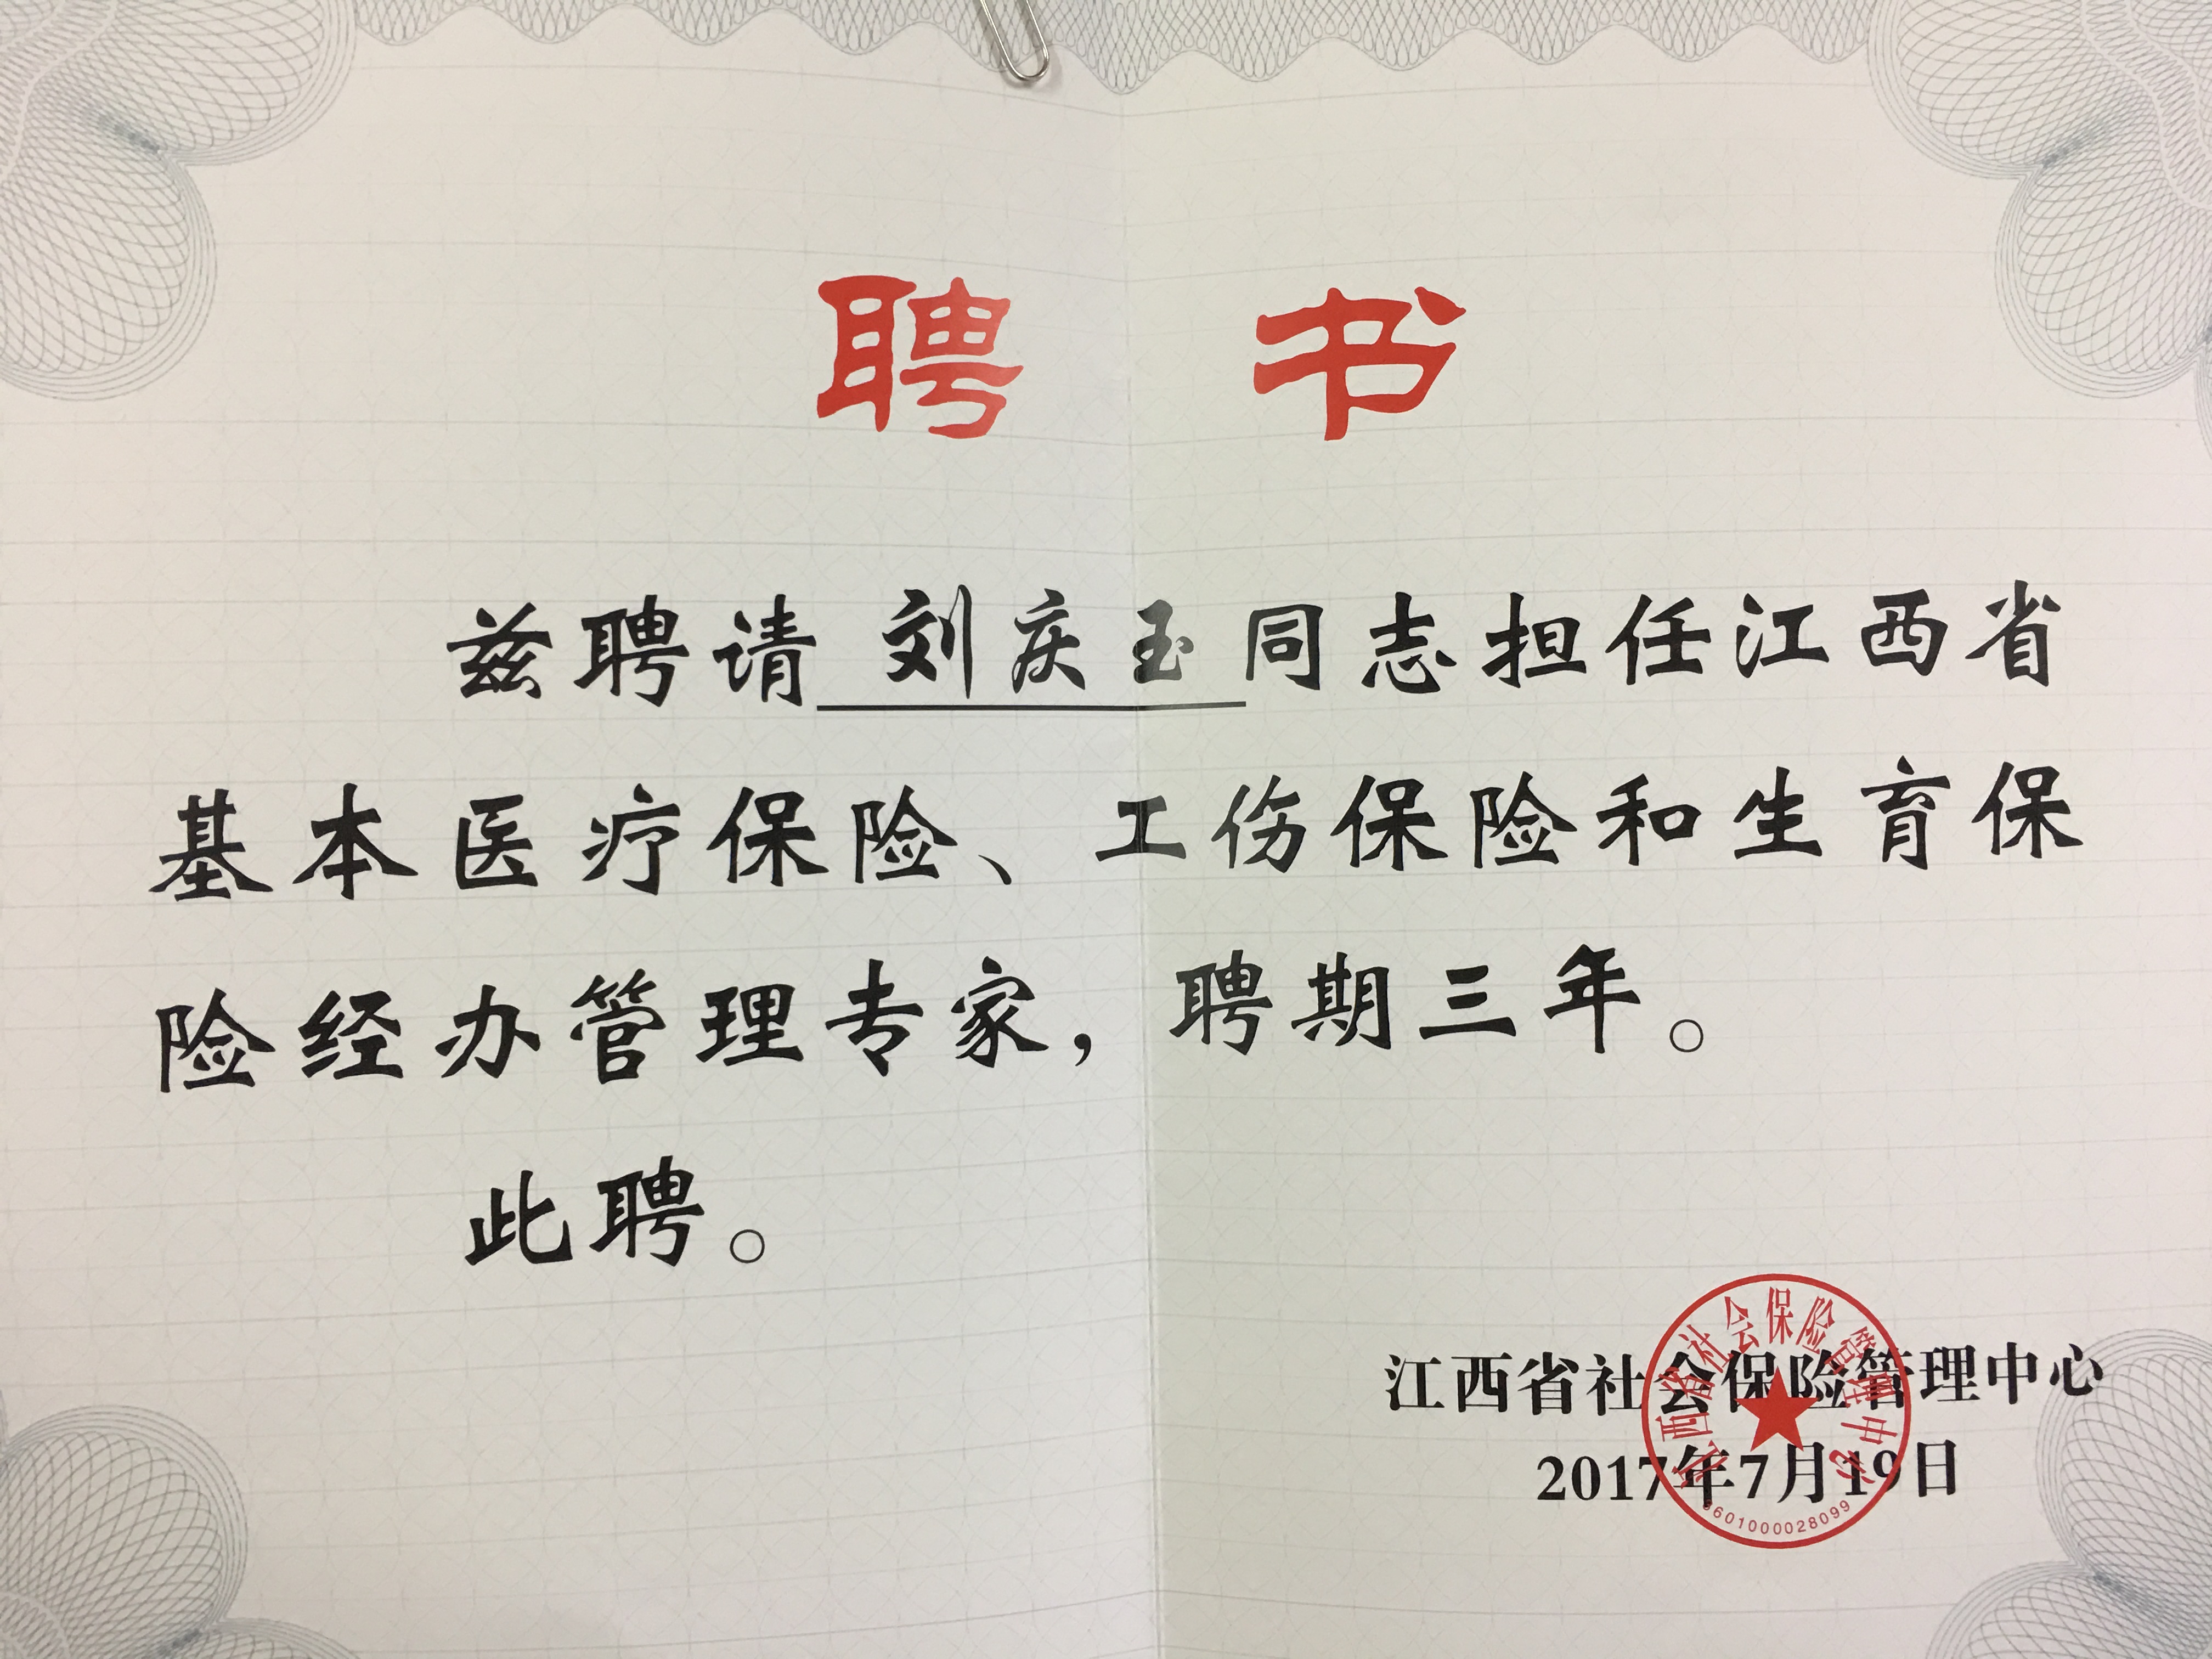 聘 书
兹聘请 刘庆玉 同志担任江西省
基本医疗保险、工伤保险和生育保
险经办管理专家，聘期三年。
此聘。
江西省社会保险管理中心
2017年7月19日
江西省社会保险管理中心
3601000028099